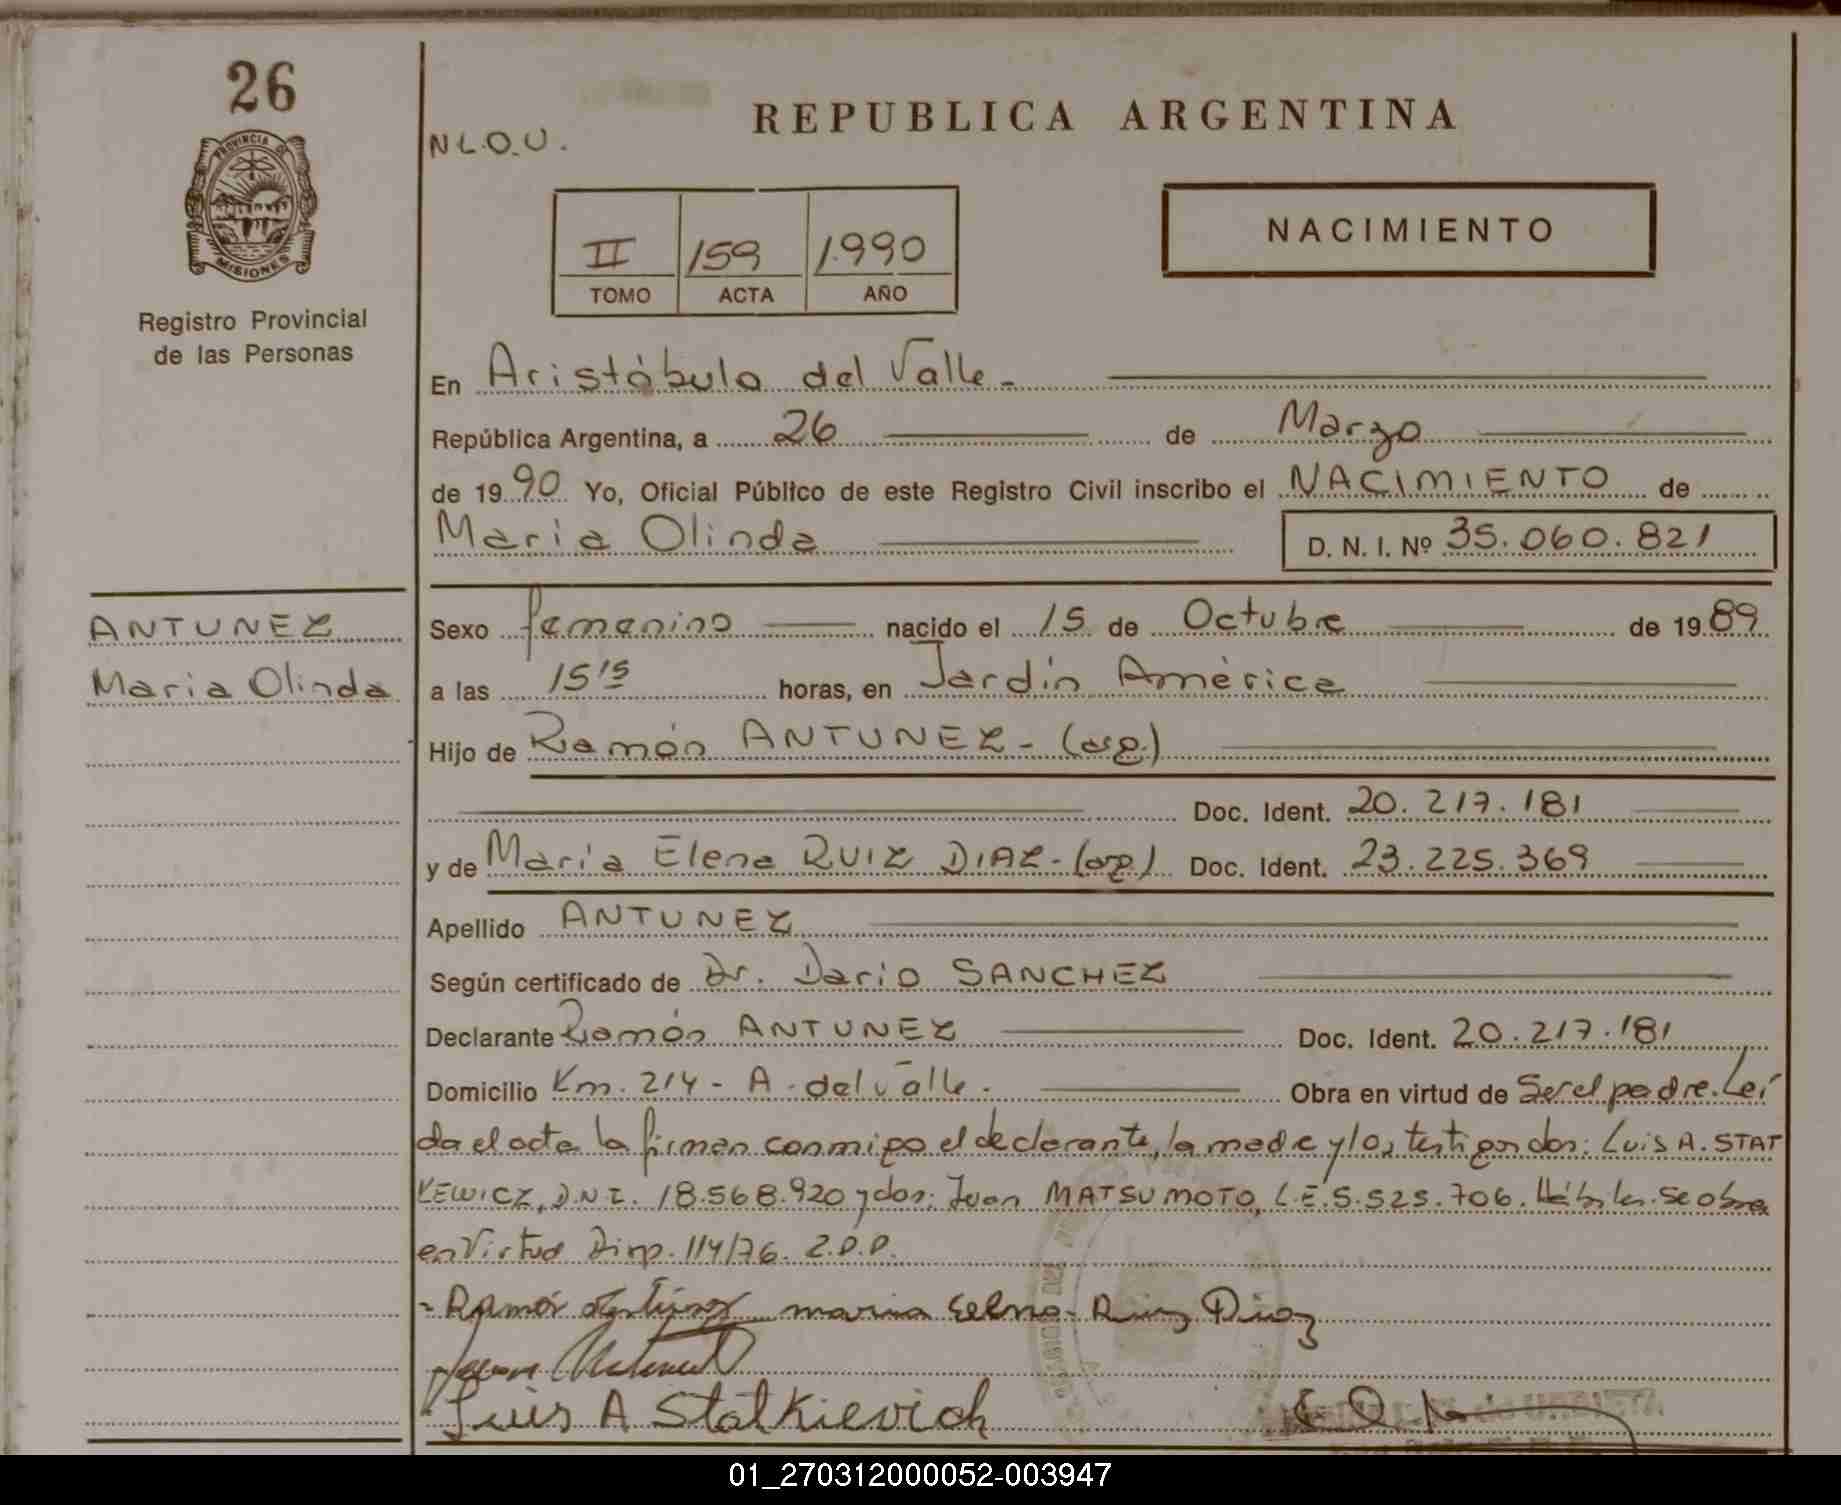 26
PROVINCIA DE
MISIONES
Registro Provincial
de las Personas
ANTUNEZ
Maria Olinda
N L.O.U.
REPUBLICA ARGENTINA
II 159 1.990
TOMO ACTA AÑO
NACIMIENTO
En Aristóbulo del Valle.-
República Argentina, a 26 de Marzo
de 1990 Yo, Oficial Público de este Registro Civil inscribo el NACIMIENTO de
Maria Olinda D. N. I. Nº 35.060.821
Sexo femenino nacido el 15 de Octubre de 1989
a las 15 15 horas, en Jardín América
Hijo de Ramón ANTUNEZ - (arg.)
Doc. Ident. 20.217.181
y de María Elena RUIZ DIAZ - (arg.) Doc. Ident. 23.225.369
Apellido ANTUNEZ
Según certificado de Dr. Dario SANCHEZ
Declarante Ramón ANTUNEZ Doc. Ident. 20.217.181
Domicilio Km. 214 - A. del Valle. Obra en virtud de Ser el padre. Leí
da el acta la firman conmigo el declarante, la madre y los testigos don: Luis A. STAT
KEWICZ, D.N.I. 18.568.920 y don: Juan MATSUMOTO, L.E. 5.525.706. Hábiles. Se obra
en Virtud Disp. 114/76.
Ramón Antunez maria Eelna Ruiz Diaz
Juan
Luis A Statkievich
01_270312000052-003947